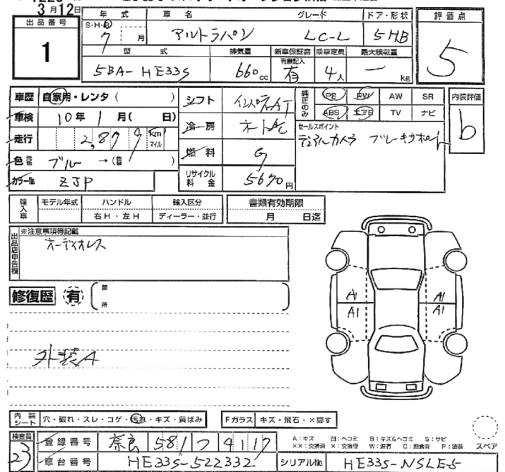 3月12日
出品番号 1
年式 車名 グレード ドア・形状
S・H・R 7月 アルトラパン LC-L 5HB
型式 排気量 新車保証書 乗車定員 最大積載量
5BA-HE33S 660cc 有 4人 ー kg
評価点 5
車歴 自家用・レンタ( )
車検 10年1月( 日)
走行 2,879 Km マイル
色 ブルー →( )
カラー№ ZJP
シフト インパネAT
冷房
燃料 G
リサイクル料金 5690円
純正のみ PS PW AW SR
ABS エアB TV ナビ
セールスポイント
デュアルカメラ ブレーキサポート
内装評価 b
輸入車 モデル年式 ハンドル 輸入区分 書類有効期限
右H・左H ディーラー・並行 月 日迄
※注意事項等記載
出品店申告欄
オーディオレス
修復歴 有 箇所
A1 A1
A1 A1
外装A
内装シート 穴・破れ・スレ・コゲ・汚れ・キズ・異ばみ
Fガラス キズ・飛石・×要す
スペア
検査員 23
登録番号 奈良 581 つ 4117
車台番号 HE33S-522332
シリアル№ HE33S-NSLE-5